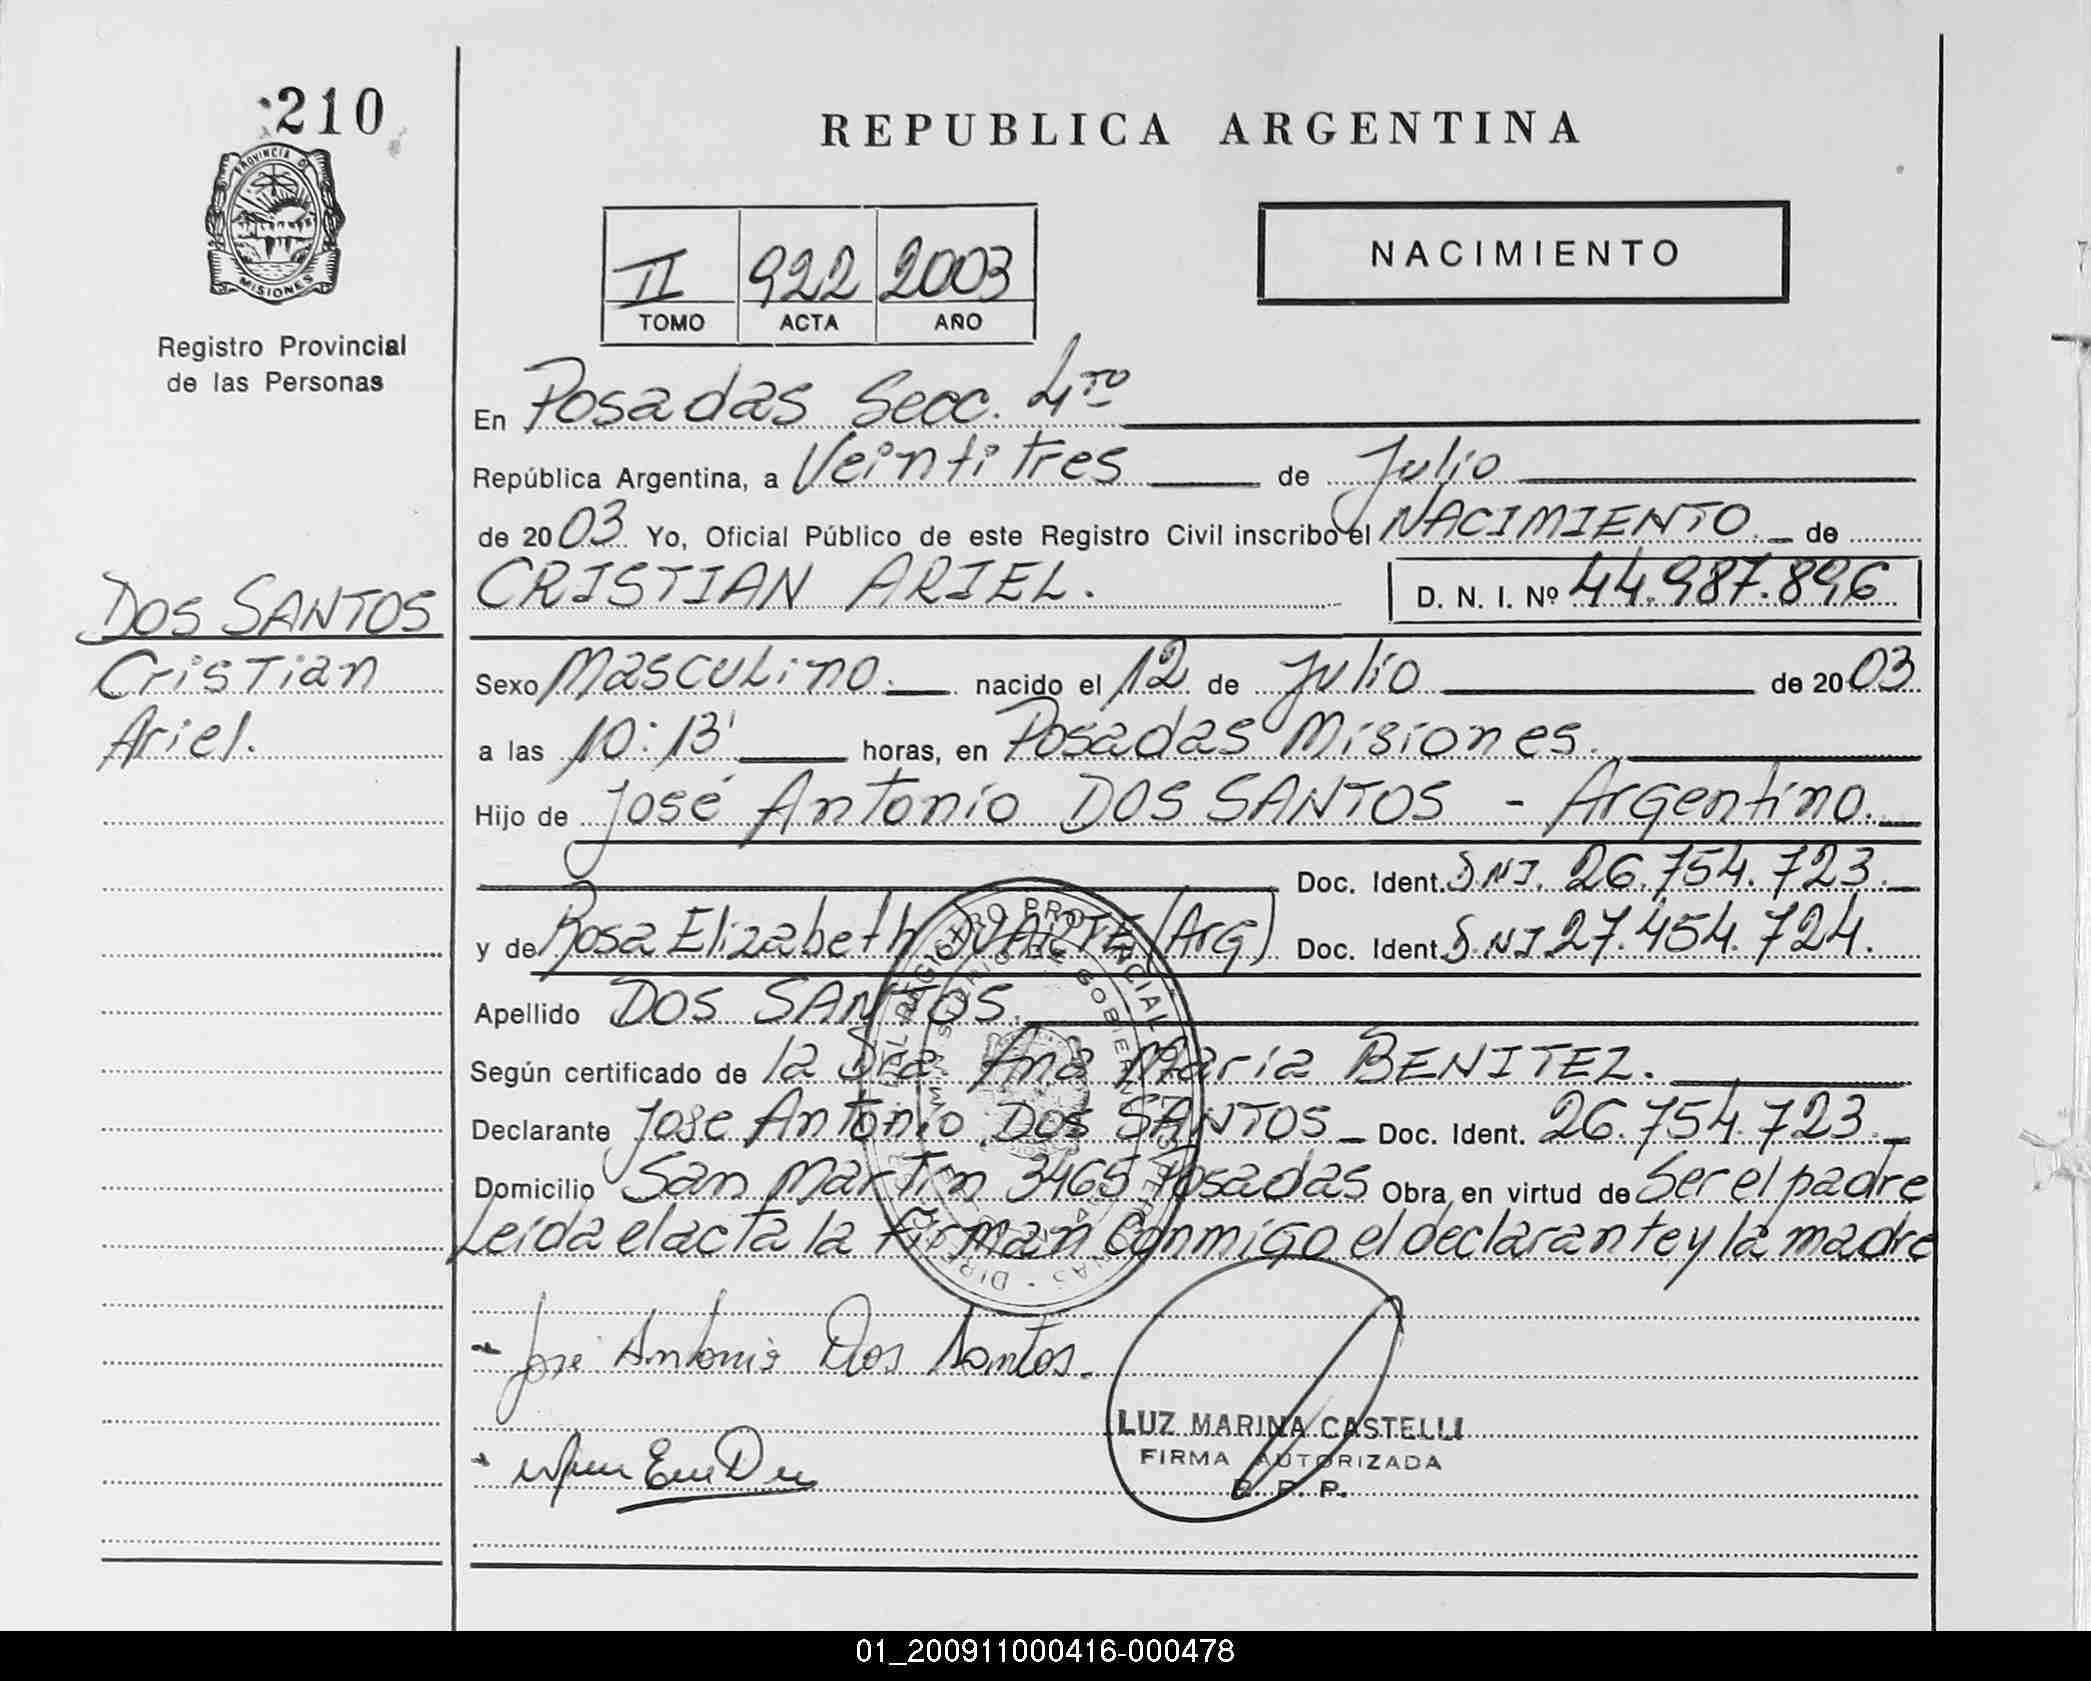 210
PROVINCIA DE
MISIONES
Registro Provincial
de las Personas
DOS SANTOS
Cristian
Ariel.
REPUBLICA ARGENTINA
II 922 2003
TOMO ACTA AÑO
NACIMIENTO
En Posadas Secc. 4to
República Argentina, a Veintitres de Julio
de 2003 Yo, Oficial Público de este Registro Civil inscribo el NACIMIENTO. de
CRISTIAN ARIEL. D. N. I. Nº 44.987.896
Sexo Masculino. nacido el 12 de Julio de 2003
a las 10:13' horas, en Posadas Misiones.
Hijo de José Antonio DOS SANTOS - Argentino.
Doc. Ident. D.N.I. 26.754.723.
y de Rosa Elizabeth DUARTE (Arg) Doc. Ident. D.N.I 27.454.724.
Apellido DOS SANTOS.
Según certificado de la Dra Ana Maria BENITEZ.
Declarante Jose Antonio DOS SANTOS Doc. Ident. 26.754.723.
Domicilio San Martin 3465 Posadas Obra en virtud de Ser el padre
Leida el acta la firman conmigo el declarante y la madre
José Antonio Dos Santos.
LUZ MARINA CASTELLI
FIRMA AUTORIZADA
R. P. P.
01_200911000416-000478